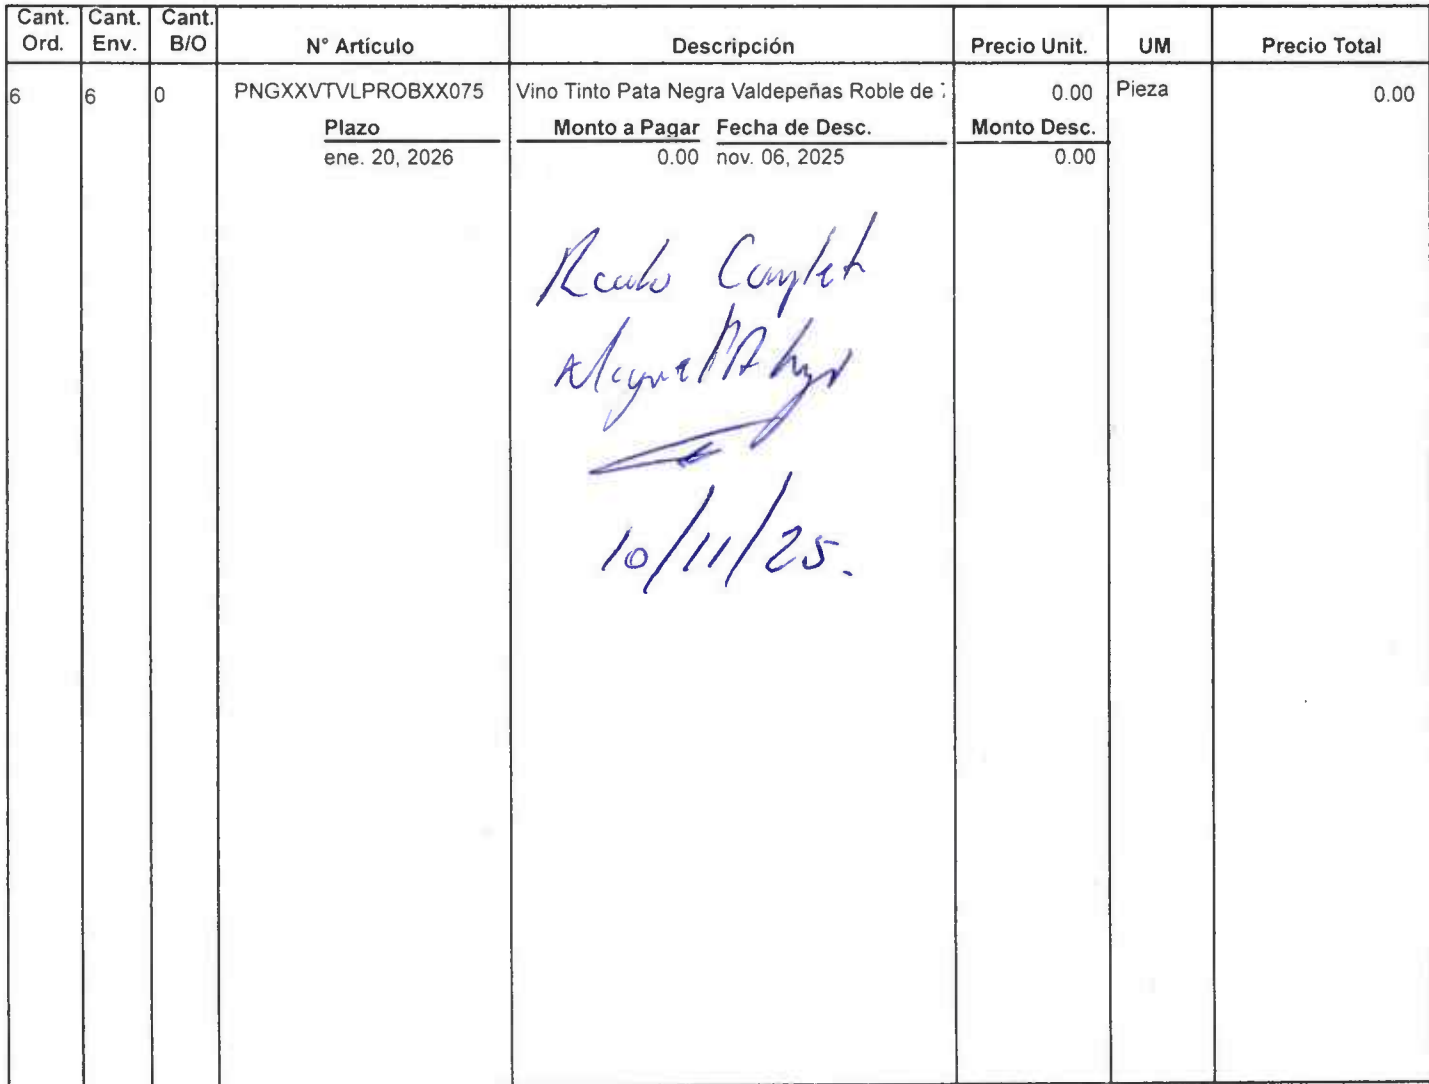 Cant. Ord. Cant. Env. Cant. B/O N° Artículo Descripción Precio Unit. UM Precio Total
6 6 0 PNGXXVTVLPROBXX075 Vino Tinto Pata Negra Valdepeñas Roble de 0.00 Pieza 0.00
Plazo Monto a Pagar Fecha de Desc. Monto Desc.
ene. 20, 2026 0.00 nov. 06, 2025 0.00
10/11/25.